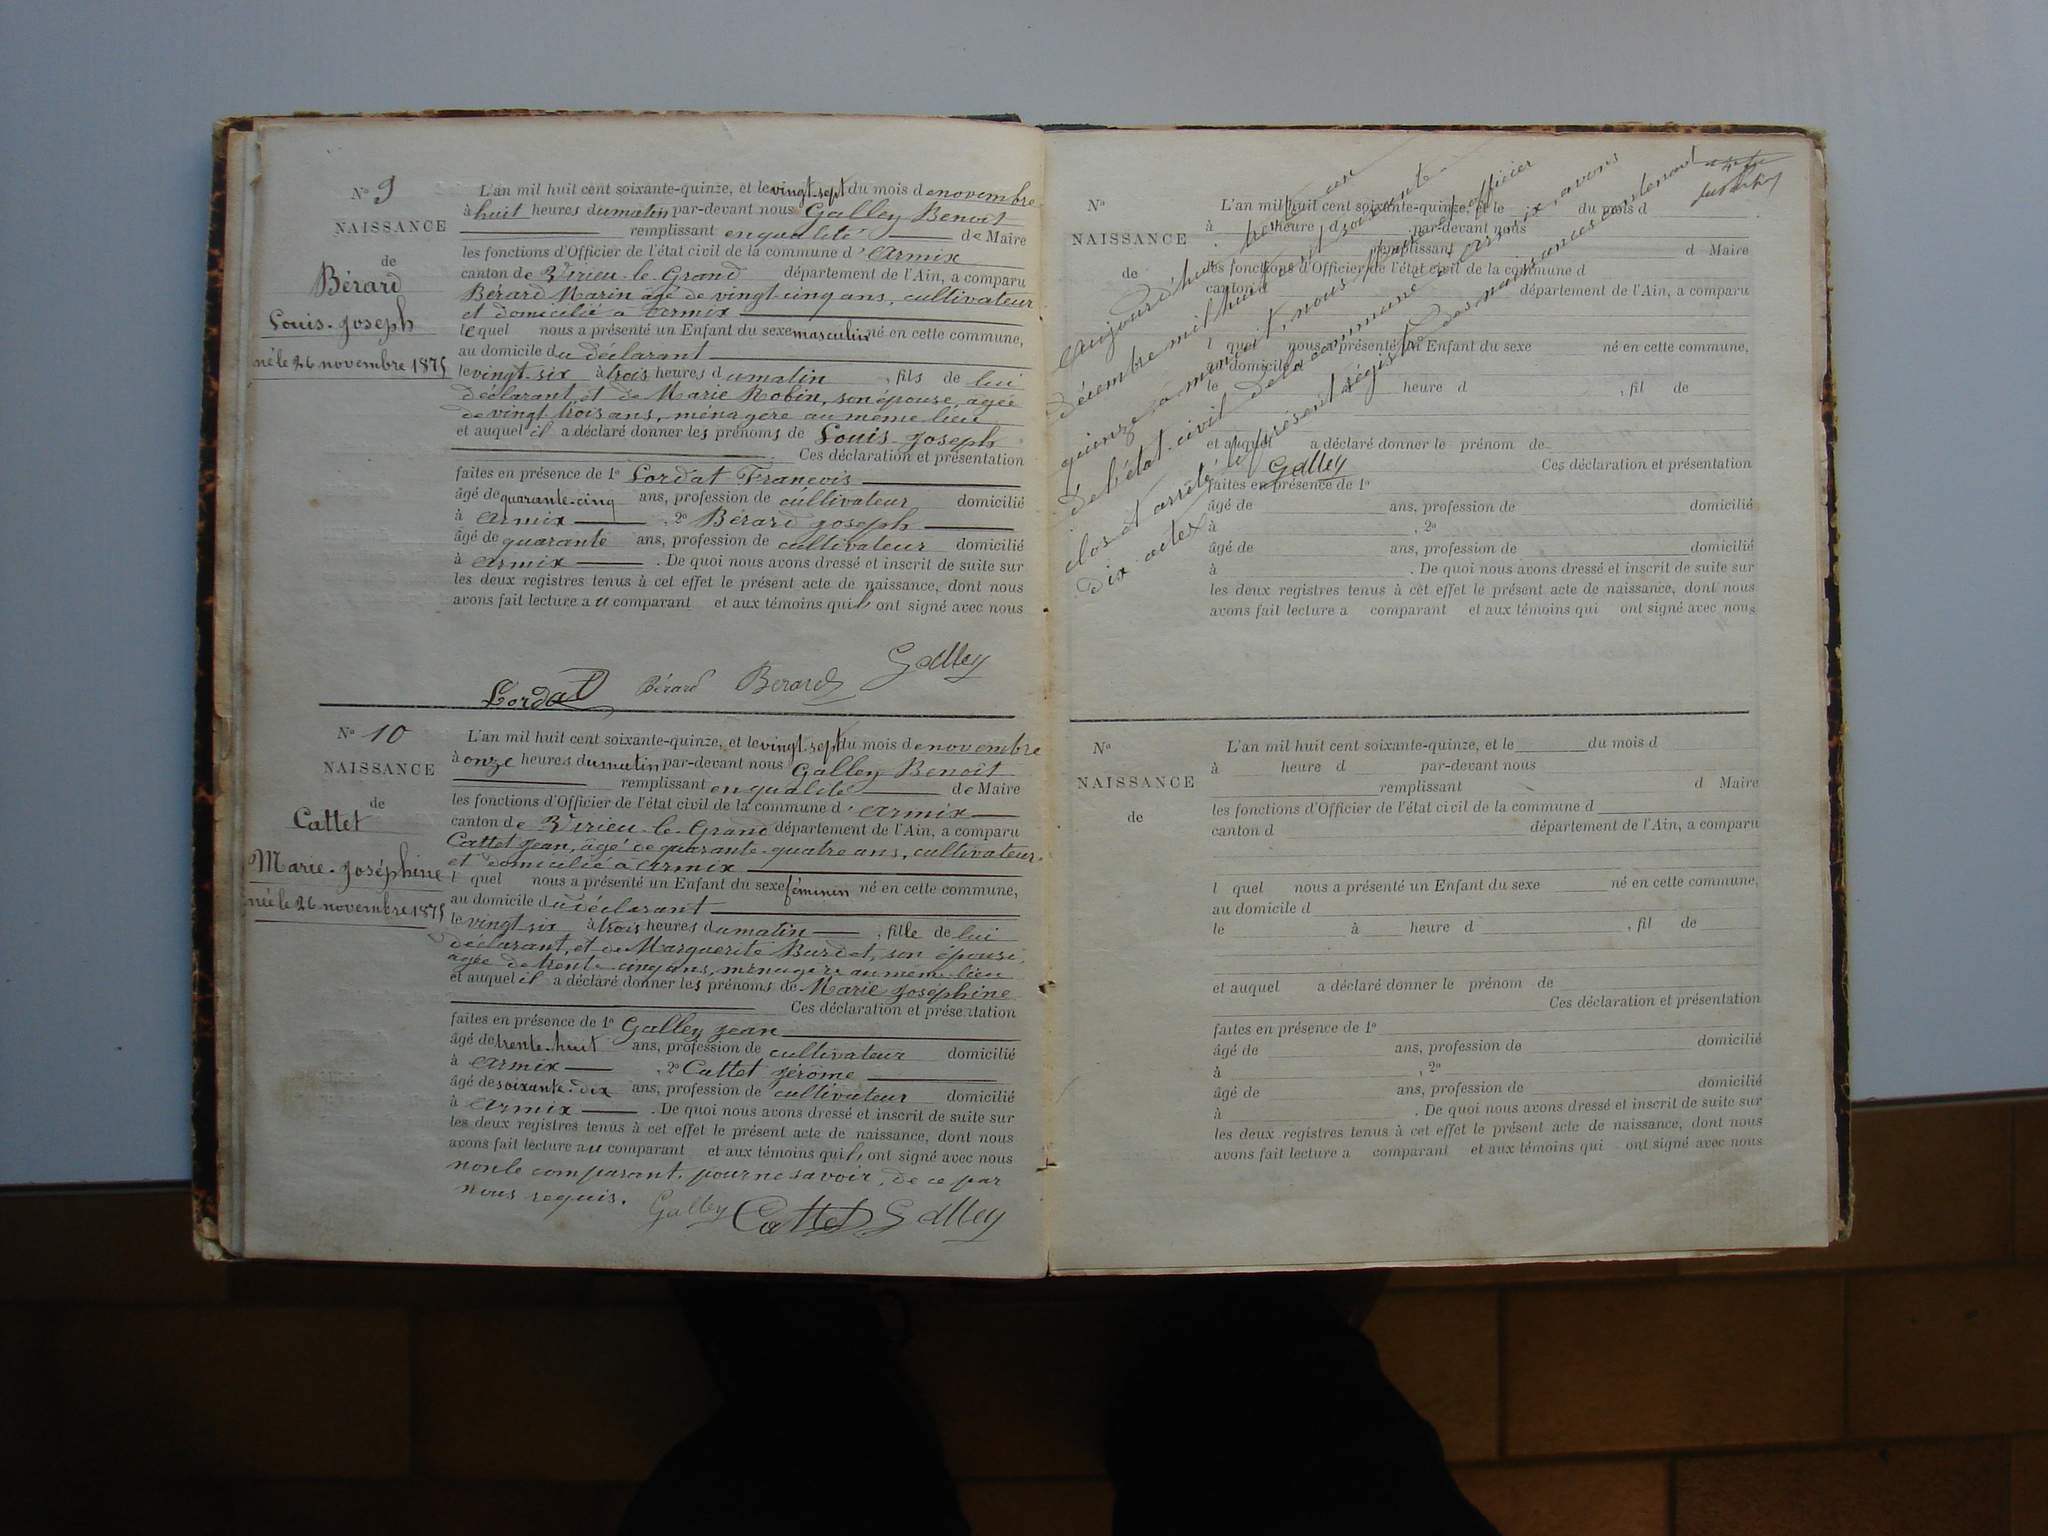 Nº 9
NAISSANCE
de
Bérard
Louis-Joseph
né le 26 novembre 1875
L'an mil huit cent soixante-quinze, et le vingt-sept du mois de novembre
à huit heures du matin par-devant nous Galley Benoît
remplissant en qualité de Maire
les fonctions d'Officier de l'état civil de la commune d'Armix
canton de Virieu-le-Grand département de l'Ain, a comparu
Bérard Marin âgé de vingt-cinq ans, cultivateur
et domicilié à Armix
lequel nous a présenté un Enfant du sexe masculin né en cette commune,
au domicile du déclarant
le vingt-six à trois heures du matin, fils de lui
déclarant, et de Marie Robin, son épouse, âgée
de vingt-trois ans, ménagère au même lieu
et auquel il a déclaré donner les prénoms de Louis-Joseph
Ces déclaration et présentation
faites en présence de 1º Lordat François
âgé de quarante-cinq ans, profession de cultivateur domicilié
à Armix, 2º Bérard Joseph
âgé de quarante ans, profession de cultivateur domicilié
à Armix. De quoi nous avons dressé et inscrit de suite sur
les deux registres tenus à cet effet le présent acte de naissance, dont nous
avons fait lecture au comparant et aux témoins qui ont signé avec nous
Lordat Bérard Bérard Galley
Nº 10
NAISSANCE
de
Cattet
Marie-Joséphine
née le 26 novembre 1875
L'an mil huit cent soixante-quinze, et le vingt-sept du mois de novembre
à onze heures du matin par-devant nous Galley Benoît
remplissant en qualité de Maire
les fonctions d'Officier de l'état civil de la commune d'Armix
canton de Virieu-le-Grand département de l'Ain, a comparu
Cattet Jean, âgé de quarante-quatre ans, cultivateur
et domicilié à Armix
l quel nous a présenté un Enfant du sexe féminin né en cette commune,
au domicile du déclarant
le vingt-six à trois heures du matin, fille de lui
déclarant, et de Marguerite Burdet, son épouse,
âgée de trente-cinq ans, ménagère au même lieu
et auquel il a déclaré donner les prénoms de Marie Joséphine
Ces déclaration et présentation
faites en présence de 1º Galley Jean
âgé de trente-huit ans, profession de cultivateur domicilié
à Armix, 2º Cattet Jérôme
âgé de soixante-dix ans, profession de cultivateur domicilié
à Armix. De quoi nous avons dressé et inscrit de suite sur
les deux registres tenus à cet effet le présent acte de naissance, dont nous
avons fait lecture au comparant et aux témoins qui ont signé avec nous
non le comparant, pour ne savoir, de ce par
nous requis.
Galley Cattet Galley
Aujourd'hui trente-un
décembre mil huit cent soixante-
quinze à minuit, nous Maire et officier
de l'état-civil de la commune d'Armix, avons
clos et arrêté le présent registre des naissances contenant
dix actes
Galley
Nº
NAISSANCE
de
L'an mil huit cent soixante-quinze, et le du mois d
à heure d par-devant nous
remplissant d Maire
les fonctions d'Officier de l'état civil de la commune d
canton d département de l'Ain, a comparu
l quel nous a présenté un Enfant du sexe né en cette commune,
au domicile d
le à heure d , fil de
et auquel a déclaré donner le prénom de
Ces déclaration et présentation
faites en présence de 1º
âgé de ans, profession de domicilié
à , 2º
âgé de ans, profession de domicilié
à . De quoi nous avons dressé et inscrit de suite sur
les deux registres tenus à cet effet le présent acte de naissance, dont nous
avons fait lecture a comparant et aux témoins qui ont signé avec nous
Nº
NAISSANCE
de
L'an mil huit cent soixante-quinze, et le du mois d
à heure d par-devant nous
remplissant d Maire
les fonctions d'Officier de l'état civil de la commune d
canton d département de l'Ain, a comparu
l quel nous a présenté un Enfant du sexe né en cette commune,
au domicile d
le à heure d , fil de
et auquel a déclaré donner le prénom de
Ces déclaration et présentation
faites en présence de 1º
âgé de ans, profession de domicilié
à , 2º
âgé de ans, profession de domicilié
à . De quoi nous avons dressé et inscrit de suite sur
les deux registres tenus à cet effet le présent acte de naissance, dont nous
avons fait lecture a comparant et aux témoins qui ont signé avec nous